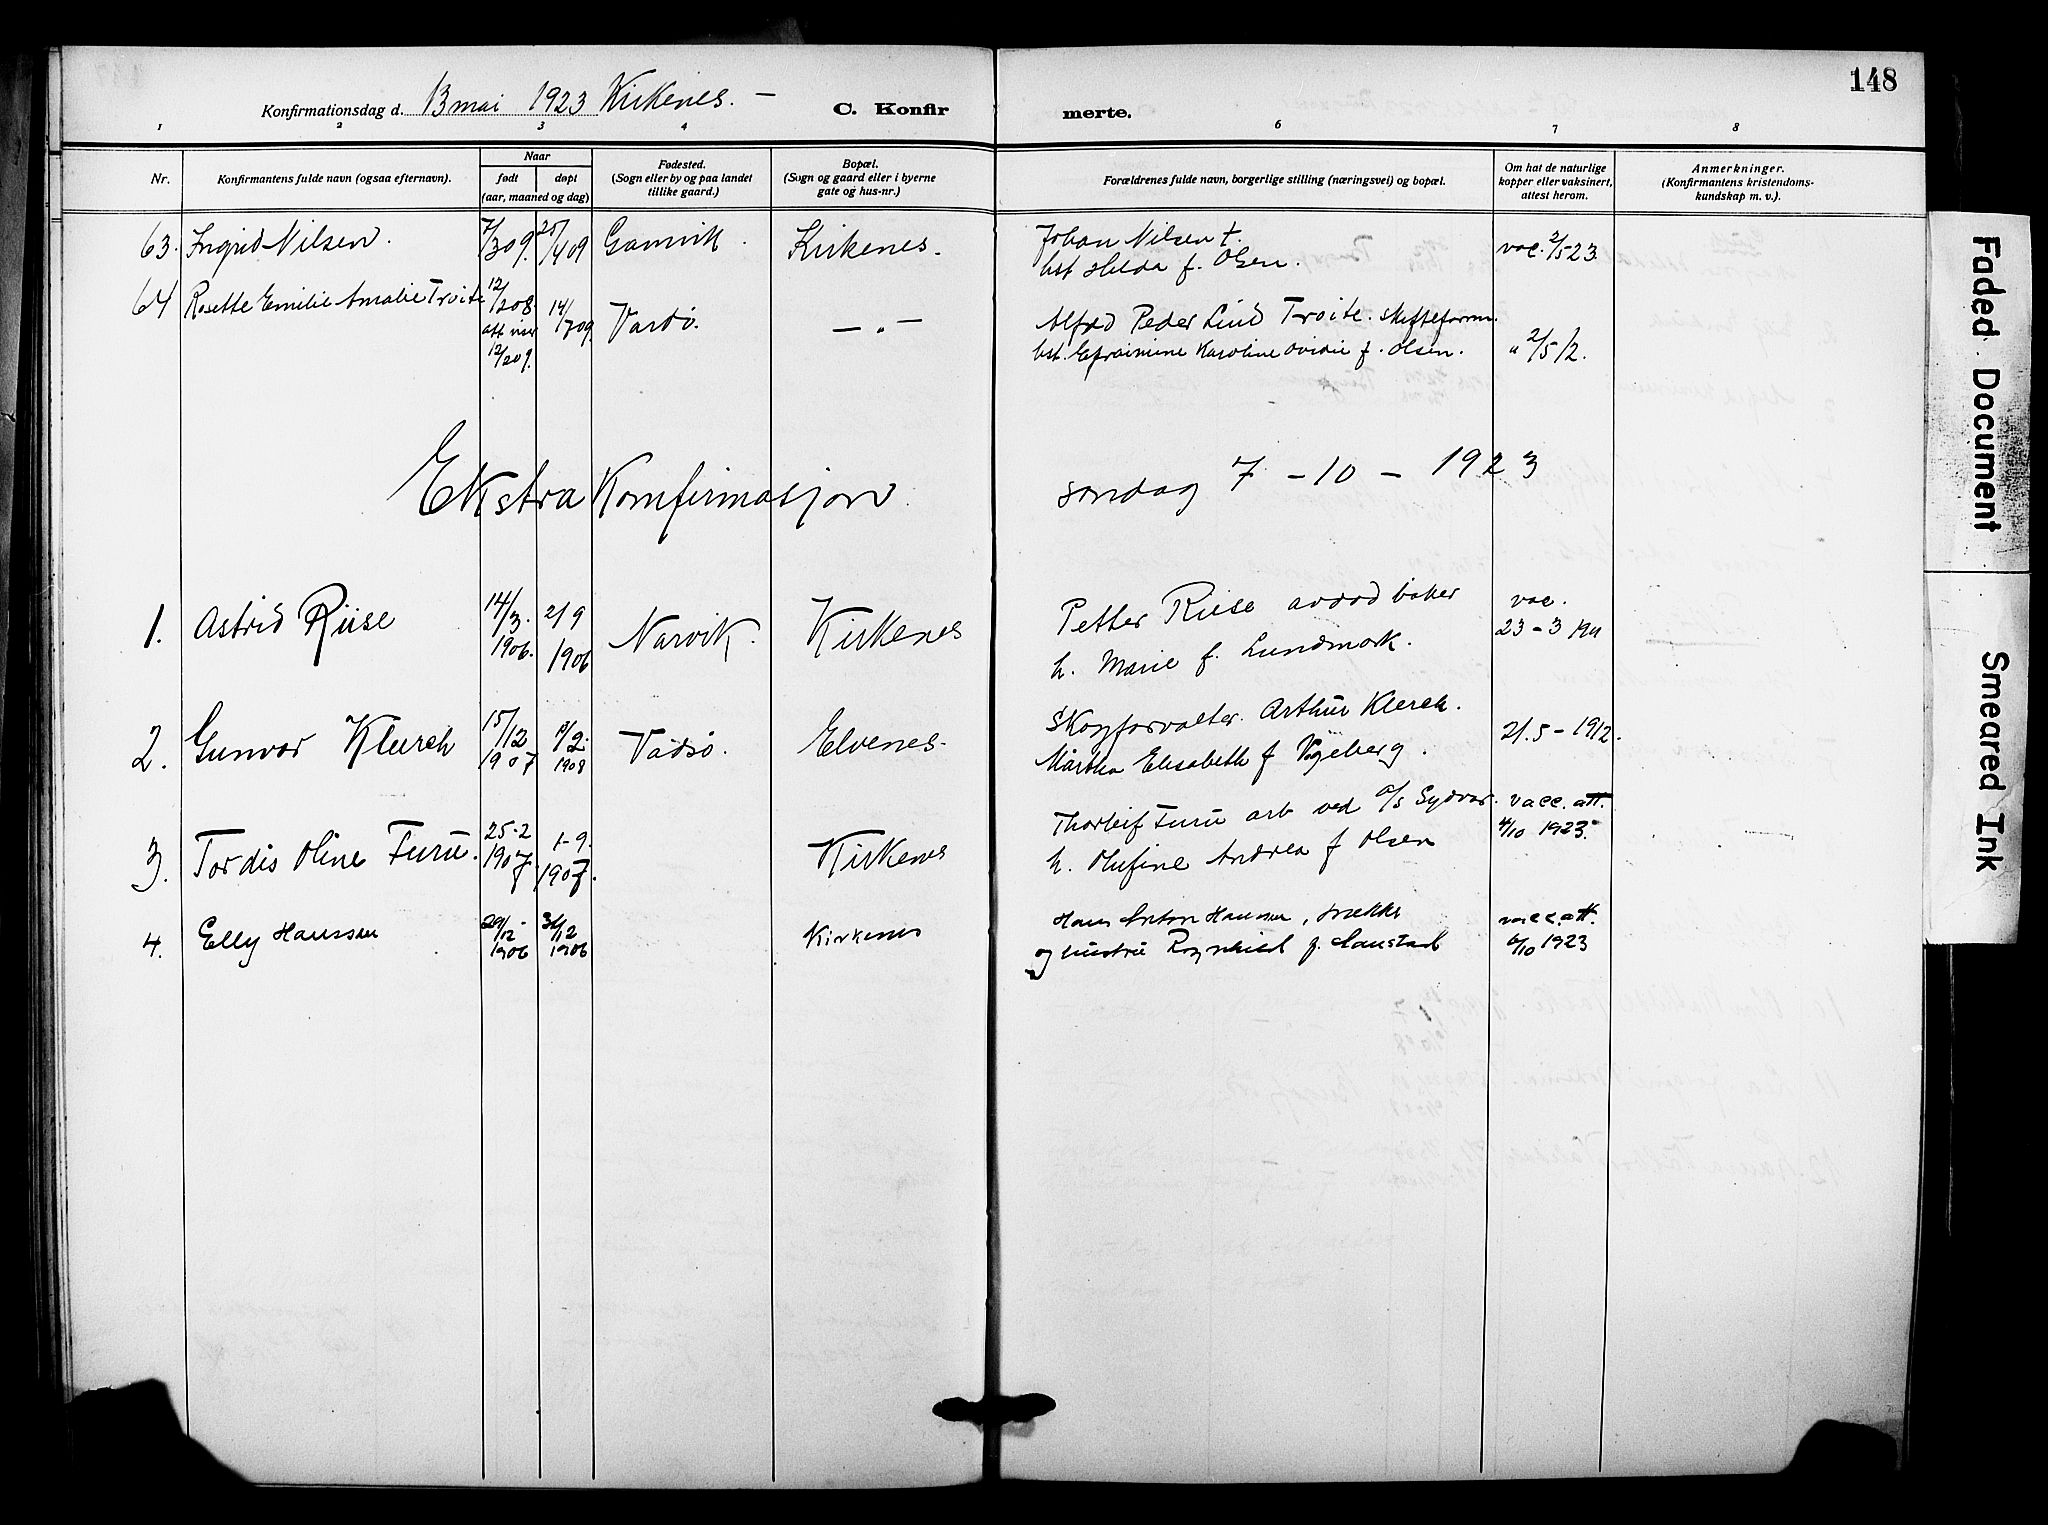 148
Konfirmationsdag d. 13 mai 1923 Kirkenes. —
C. Konfirmerte.
1 2 3 4 6 7 8
Nr.
Konfirmantens fulde navn (ogsaa efternavn).
Naar
født
døpt
(aar, maaned og dag)
Fødested.
(Sogn eller by og paa landet
tillike gaard.)
Bopæl.
(Sogn og gaard eller i byerne
gate og hus-nr.)
Forældrenes fulde navn, borgerlige stilling (næringsvei) og bopæl.
Om hat de naturlige
kopper eller vaksinert,
attest herom.
Anmerkninger.
(Konfirmantens kristendoms-
kundskap m. v.).
63. Ingrid Nilsen. 7/3 09. 25/4 09 Gamvik. Kirkenes. Johan Nilsen †. vac. 2/5 23.
hst Hilda f. Olsen.
64 Rosette Emilie Amalie Troite 12/2 08. 14/7 09. Vardø. — „ — Alfred Peder Lind Troite. skifteform.
att viser
12/2 09. hst. Efraimine Karoline Ovidie f. Olsen. " 2/5 12.
Ekstra Konfirmasjon søndag 7 – 10 – 1923
1. Astrid Riise 14/3. 1906. 2/9 1906 Narvik. Kirkenes Petter Riise avdød baker vac.
h. Marie f. Lundmark. 23 – 3 1911
2. Gunvor Klerck 15/12 1907 9/2. 1908 Vadsø. Elvenes. Skogforvalter. Arthur Klerck. 21. 5 – 1912.
Martha Elisabeth f
3. Tordis Oline Furu. 25-2 1907 1-9. 1907. Kirkenes Thorleif Furu arb ved A/S Sydvar. vacc. att.
h. Olufine Andrea f Olsen 4/10 1923.
4. Elly Hanssen 29/12 1906 31/12 1906 Kirkenes Hans Anton Hanssen, vacc. att.
og hustru Ragnhild f. 6/10 1923
Faded Document
Smeared Ink